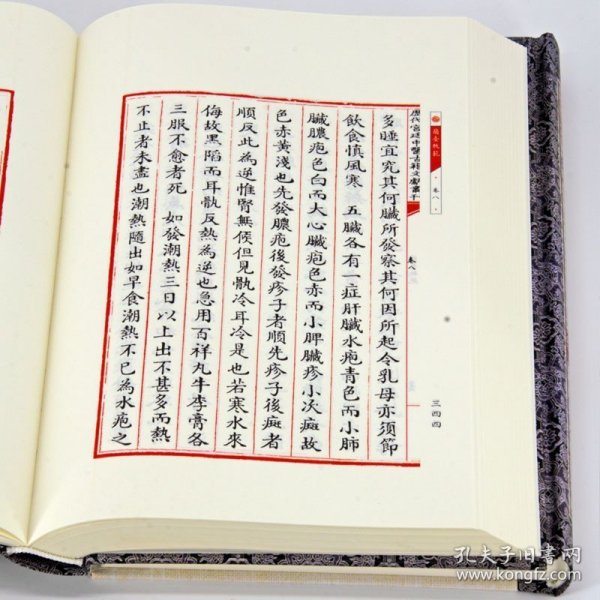 歷代宮廷中醫古籍文獻薈萃
卷八
卷八
三四四
多睡宜究其何臟所發察其何因所起令乳母亦須節
飲食慎風寒 五臟各有一症肝臟水疱青色而小肺
臟膿疱色白而大心臟疱色赤而小脾臟疹小次癍故
色赤黃淺也先發膿疱後發疹子者順先疹子後癍者
順反此為逆惟腎無候但見骩冷耳冷是也若寒水來
侮故黑陷而耳骩反熱為逆也急用百祥丸牛李膏各
三服不愈者死 如發潮熱三日以上出不甚多而熱
不止者未盡也潮熱隨出如早食潮熱不已為水疱之
孔夫子旧书网
www.kongfz.com